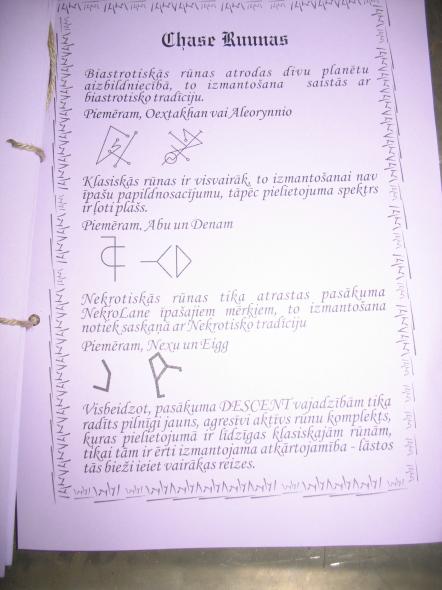 Chase Ruunas
Biastrotiskās rūnas atrodas divu planētu
aizbildniecībā, to izmantošana saistās ar
biastrotisko tradīciju.
Piemēram, Oextakhan vai Aleorynnio
Klasiskās rūnas ir visvairāk, to izmantošanai nav
īpašu papildnosacījumu, tāpēc pielietojuma spektrs
ir ļoti plašs.
Piemēram, Abu un Denam
Nekrotiskās rūnas tika atrastas pasākuma
NekroLane īpašajiem mērķiem, to izmantošana
notiek saskaņā ar Nekrotisko tradīciju
Piemēram, Nexu un Eigg
Visbeidzot, pasākuma DESCENT vajadzībām tika
radīts pilnīgi jauns, agresīvi aktīvs rūnu komplekts,
kuras pielietojumā ir līdzīgas klasiskajām rūnām,
tikai tām ir ērti izmantojama atkārtojamība - lāstos
tās bieži ieiet vairākas reizes.